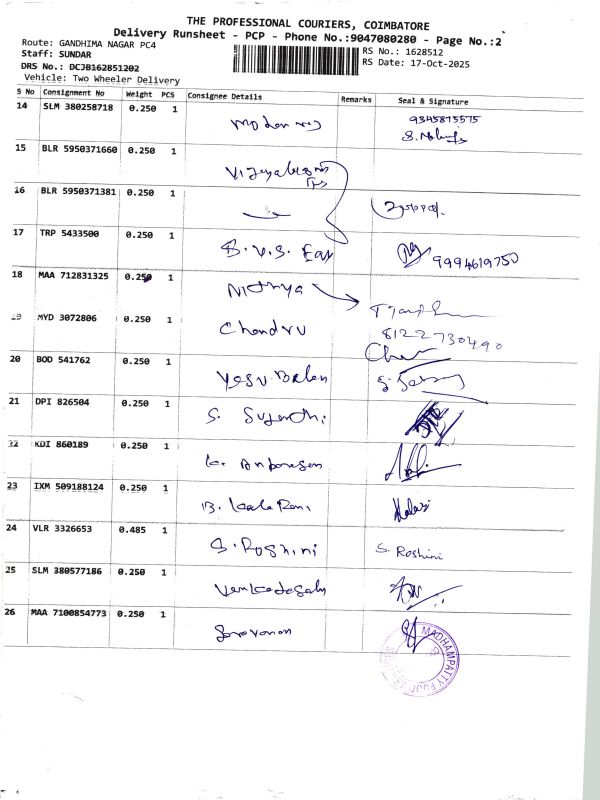 THE PROFESSIONAL COURIERS, COIMBATORE
Delivery Runsheet - PCP - Phone No.:9047080280 - Page No.:2
Route: GANDHIMA NAGAR PC4
RS No.: 1628512
Staff: SUNDAR
RS Date: 17-Oct-2025
DRS No.: DCJB162851202
Vehicle: Two Wheeler Delivery
S No Consignment No Weight PCS Consignee Details Remarks Seal & Signature
14 SLM 380258718 0.250 1
15 BLR 5950371660 0.250 1
16 BLR 5950371381 0.250 1
17 TRP 5433500 0.250 1 S.V.S. 9994619750
18 MAA 712831325 0.250 1 Nithya
19 MYD 3072806 0.250 1 Chandru 8122730490
20 BOD 541762 0.250 1
21 DPI 826504 0.250 1 S.
22 KDI 860189 0.250 1 K.
23 IXM 509188124 0.250 1 B. Kala Rani
24 VLR 3326653 0.485 1 S. Roshini S. Roshini
25 SLM 380577186 0.250 1
26 MAA 7100854773 0.250 1 Saravanan
MADHAMPATTY